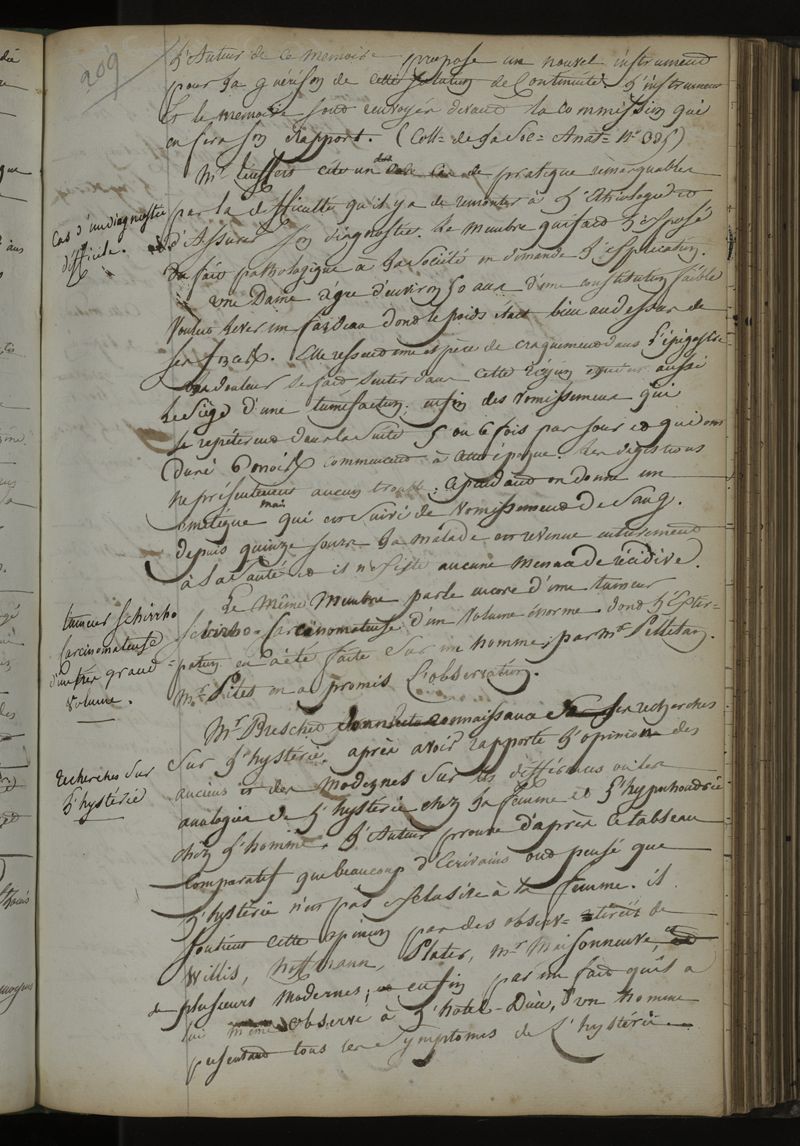 209
L'Auteur de ce memoire propose un nouvel instrument
pour la guérison de cette solution de Continuité. L'instrument
et le memoire sont renvoyés devant la Commission qui
en fera son rapport. (Coll= de la Soc= Anat= n° 385)
Mr cite un cas de pratique remarquable
Cas d'un diagnostic
difficile.
par la difficulté qu'il y a de remonter à l'Etiologie et
d'Assurer son diagnostic. Le Membre qui fait l'exposé
du fait pathologique à la Société en demande l'explication.
une Dame agée d'environ 50 ans d'une constitution faible
voulut lever un fardeau dont le poids étoit bien au dessus de
ses forces. Elle ressent une espèce de craquement dans l'épigastre
une douleur se fait sentir dans cette région aussi
le siège d'une tuméfaction. enfin des vomissemens qui
se repétèrent dans la suite 5 ou 6 fois par jour et qui ont
duré 6 mois commencent à cette époque. Les digestions
ne présentèrent aucun trouble. Cependant on donne un
emétique mais qui est suivi de vomissement de Sang.
depuis quinze jours la malade est revenue entierement
à la santé et il n'existe aucune menace de récidive.
tumeur schirrho
carcinomateuse
d'un très grand
volume.
Le Même Membre parle encore d'une tumeur
schirrho-carcinomateuse d'un volume énorme dont l'Extir-
pation en a été faite sur un homme, par Mr Pelletan.
Mr Pilet en a promis l'observation.
recherches sur
l'hystérie
Mr Breschet connaissance ses recherches
sur l'hystérie. après avoir rapporté l'opinion des
anciens et des modernes sur les différences ou les
analogies de l'hystérie chez la femme et l'hypochondrie
chez l'homme. L'Auteur prouve d'après ce tableau
comparatif que beaucoup d'Ecrivains ont pensé que
l'hystérie n'est pas exclusive à la femme. il
soutient cette opinion par des observ= tirées de
Willis, Hoffmann, Plater, Mr Maisonneuve,
de plusieurs modernes; enfin par un fait qu'il a
lui même observé à l'hôtel-Dieu, d'un homme
présentant tous les symptomes de l'hystérie.